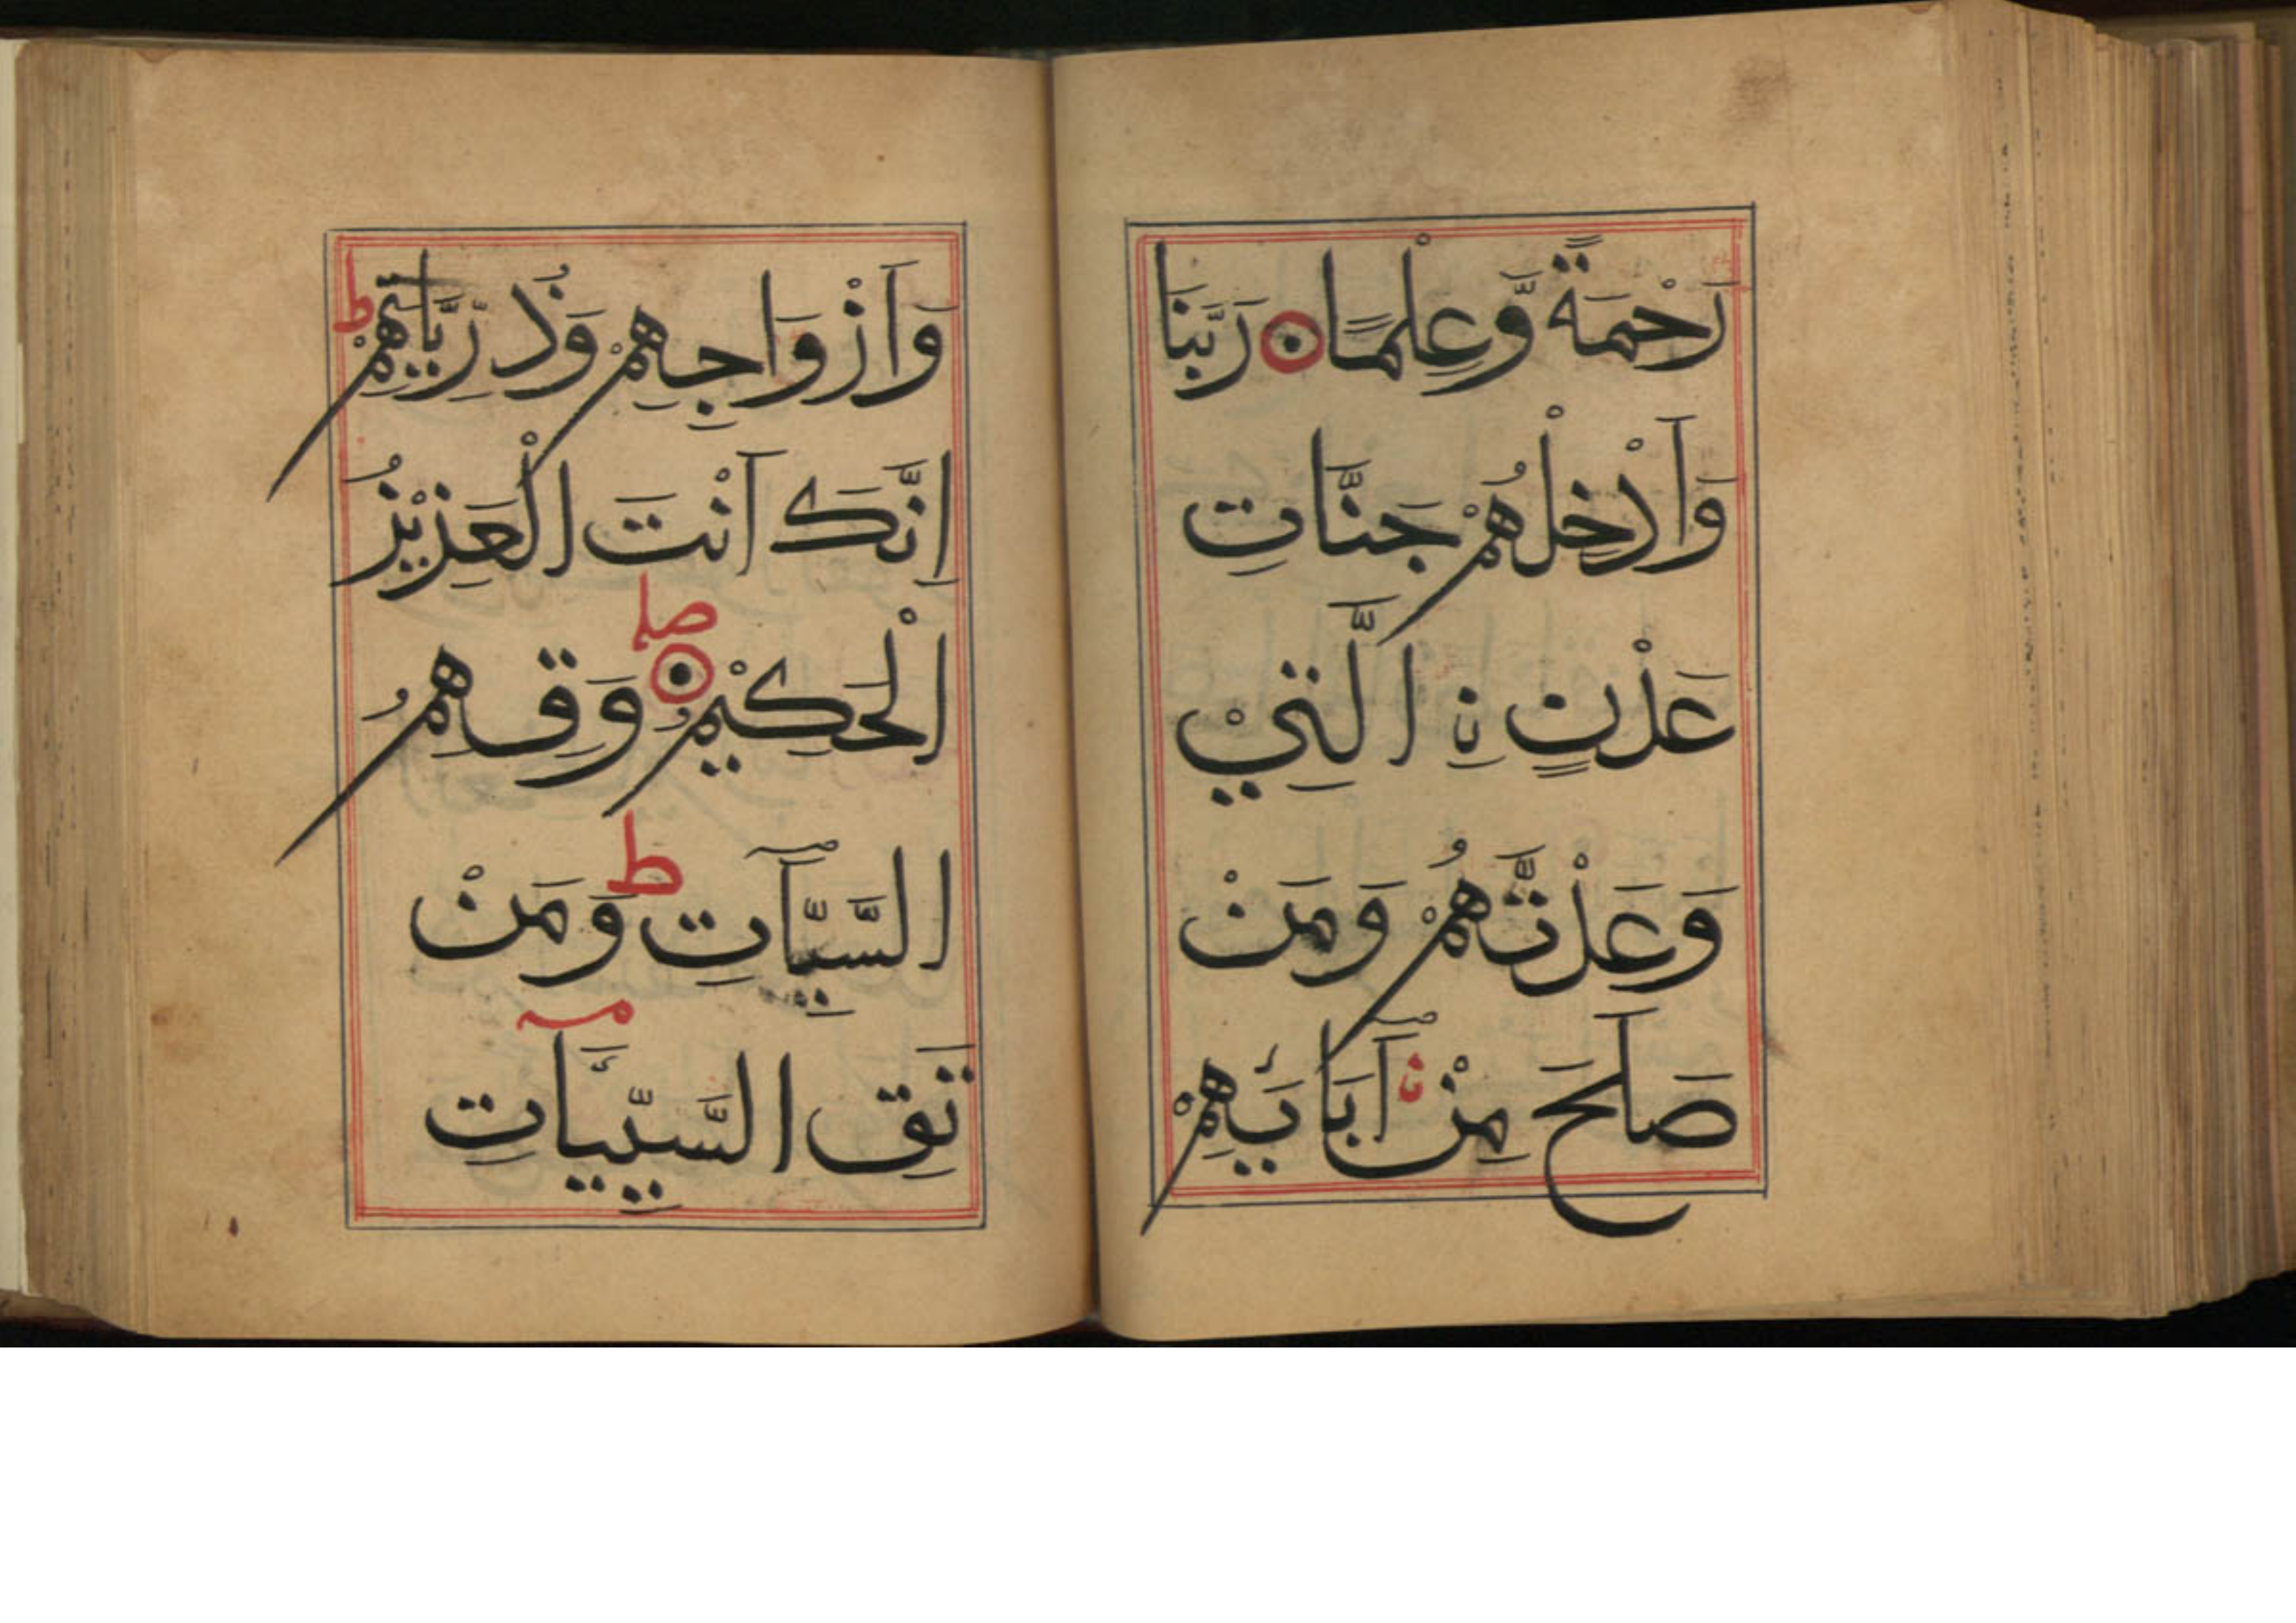 رَحْمَةً وَّعِلْمًا رَبَّنَا
وَاَدْخِلْهُمْ جَنَّاتِ
عَدْنٍ نِ الَّتِيْ
وَعَدْتَّهُمْ وَمَنْ
صَلَحَ مِنْ اٰبَآئِهِمْ
وَاَزْوَاجِهِمْ وَذُرِّيَّاتِهِمْ ط
اِنَّكَ اَنْتَ الْعَزِيْزُ
الْحَكِيْمُ صلے وَقِهِمُ
السَّيِّآتِ ط وَمَنْ
تَقِ السَّيِّئَاتِ